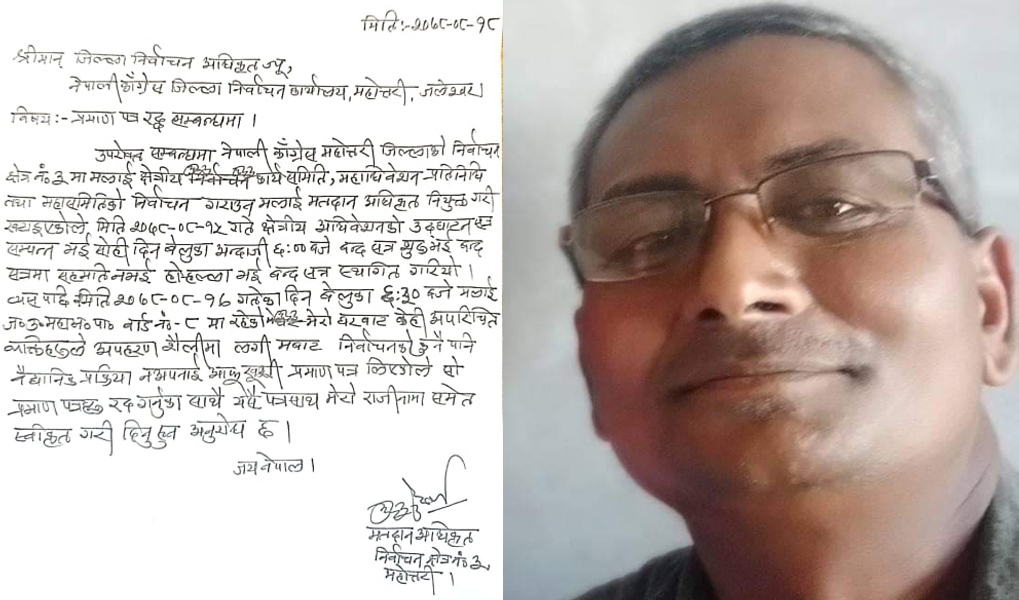 मिति:- २०७८-०८-१८
श्रीमान् जिल्ला निर्वाचन अधिकृत ज्यू,
नेपाली काँग्रेस जिल्ला निर्वाचन कार्यालय, महोत्तरी, जलेश्वर।
विषय:- प्रमाण पत्र रद्द सम्बन्धमा।
उपरोक्त सम्बन्धमा नेपाली काँग्रेस महोत्तरी जिल्लाको निर्वाचन
क्षेत्र नं. ३ मा मलाई क्षेत्रीय कार्य समिति, महाधिवेशन प्रतिनिधि
तथा महासमितिको निर्वाचन गराउन मलाई मतदान अधिकृत नियुक्त गरी
खटाइएकोले, मिति २०७८-०८-१५ गते क्षेत्रीय अधिवेशनको उद्घाटन सत्र
सम्पन्न भई सोही दिन बेलुका अन्दाजी ६:०० बजे बन्द सत्र सुरु भई बन्द
सत्रमा सहमति नभई हो-हल्ला भई बन्द सत्र स्थगित गरियो।
त्यस पछि मिति २०७८-०८-१६ गतेका दिन बेलुका ६:३० बजे मलाई
ज.उ.म.न.पा. वार्ड नं.- ८ मा रहेको मेरो घरबाट केही अपरिचित
व्यक्तिहरुले अपहरण शैलीमा लगी मबाट निर्वाचनको कुनै पनि
वैधानिक प्रक्रिया नअपनाई प्रमाण पत्र लिएकोले सो
प्रमाण पत्रहरु रद्द गर्नुका साथै यसै पत्रसाथ मेरो राजीनामा समेत
स्वीकृत गरी दिनु हुन अनुरोध छ।
जय नेपाल।
मतदान अधिकृत
निर्वाचन क्षेत्र नं. ३
महोत्तरी।